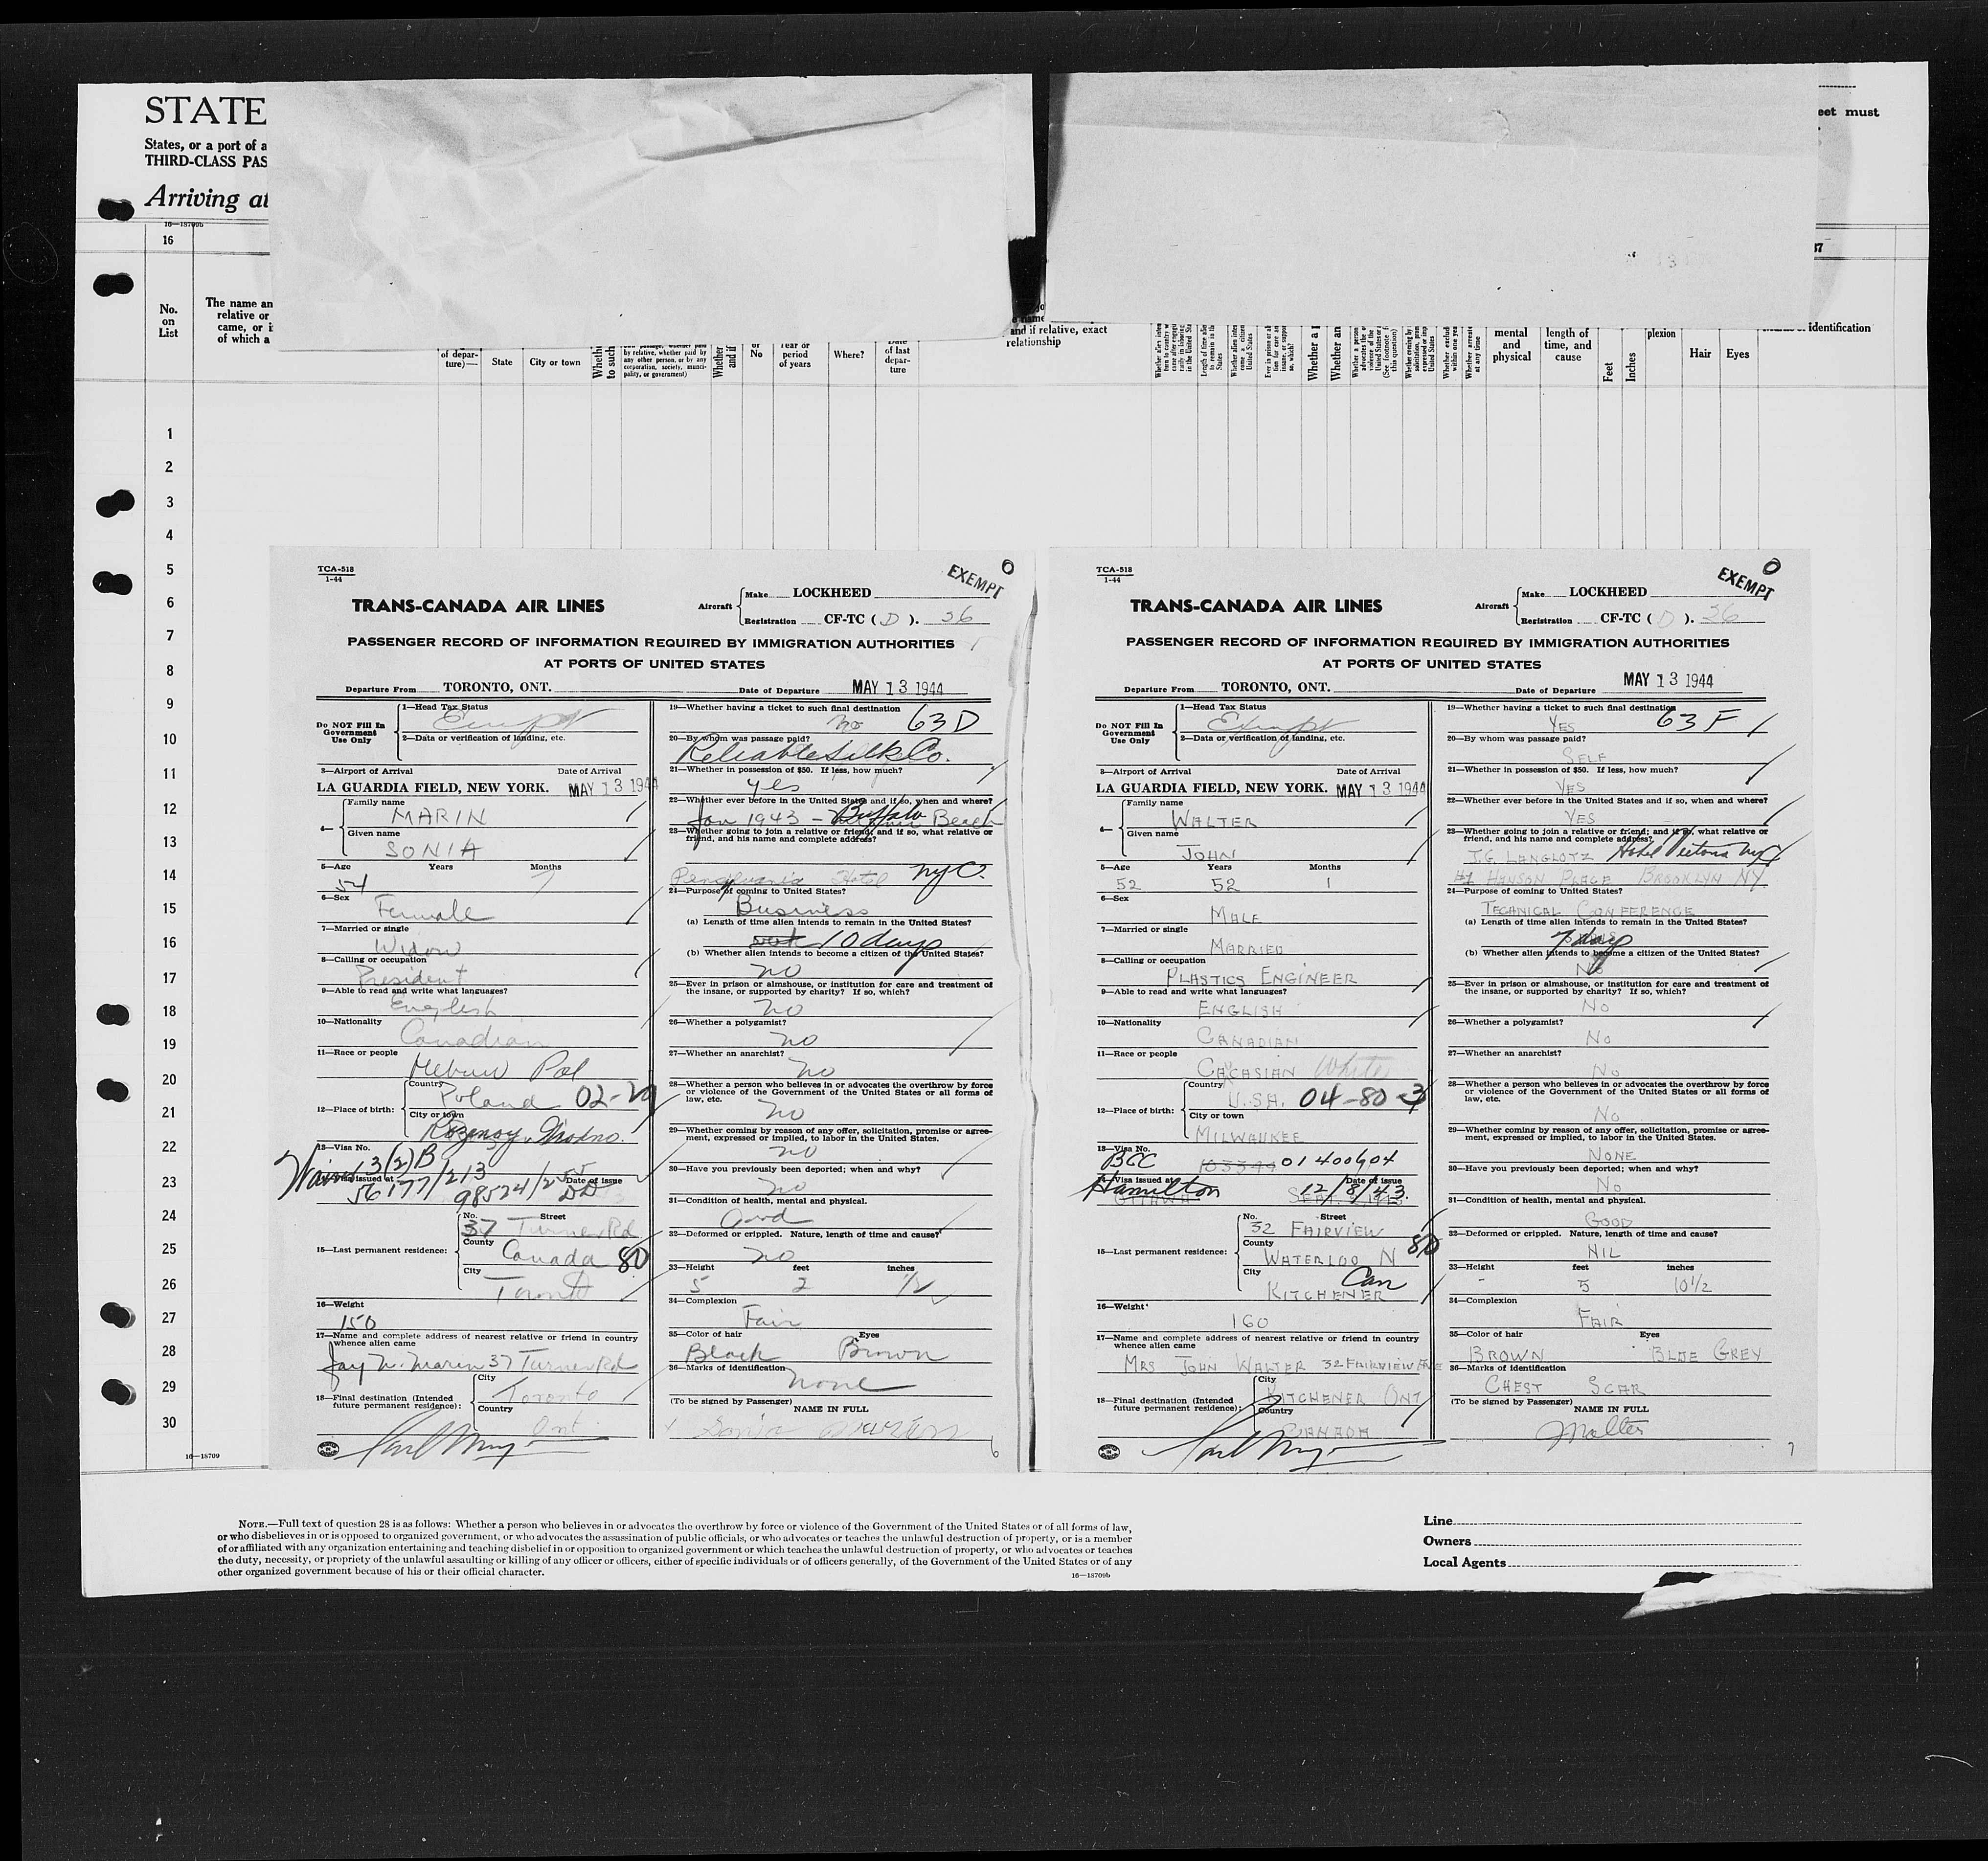 STATE
States, or a port of a
THIRD-CLASS PAS
Arriving at
eet must
16—18709b
16
37
No.
on
List
The name an
relative or
came, or i
of which a
of depar-
ture)—
State
City or town
Whethe
to such
by relative, whether paid by
any other person, or by any
corporation, society, munci-
pality, or government)
Whether
and if
or
No
Year or
period
of years
Where?
Date
of last
depar-
ture
and if relative, exact
relationship
Whether a
Whether an
mental
and
physical
length of
time, and
cause
Feet
Inches
plexion
Hair
Eyes
identification
1
2
3
4
5
6
7
8
9
10
11
12
13
14
15
16
17
18
19
20
21
22
23
24
25
26
27
28
29
30
16—18709
TCA-518
1-44
EXEMPT
0
TRANS-CANADA AIR LINES
Aircraft
Make LOCKHEED
Registration CF-TC ( D ). 56
PASSENGER RECORD OF INFORMATION REQUIRED BY IMMIGRATION AUTHORITIES
AT PORTS OF UNITED STATES
Departure From TORONTO, ONT. Date of Departure MAY 13 1944
Do NOT Fill In
Government
Use Only
1—Head Tax Status
Exempt
2—Data or verification of landing, etc.
3—Airport of Arrival Date of Arrival
LA GUARDIA FIELD, NEW YORK. MAY 13 1944
4—
Family name
MARIN
Given name
SONIA
5—Age Years Months
54 7
6—Sex
Female
7—Married or single
Widow
8—Calling or occupation
President
9—Able to read and write what languages?
English
10—Nationality
Canadian
11—Race or people
Hebrew Pol
12—Place of birth:
Country
Poland 02-20
City or town
Rozenoy, Grodno.
13—Visa No.
Waived 3(2)B
14—Visa issued at Date of issue
56177/213
98524/255
DD
15—Last permanent residence:
No. Street
37 Turner Rd
County
Canada 80
City
Toronto
16—Weight
150
17—Name and complete address of nearest relative or friend in country
whence alien came
Jay N. Marin 37 Turner Rd
18—Final destination (Intended
future permanent residence):
City
Toronto
Country
Ont
19—Whether having a ticket to such final destination
no 63 D
20—By whom was passage paid?
Reliable Silk Co.
21—Whether in possession of $50. If less, how much?
yes
22—Whether ever before in the United States and if so, when and where?
Jan 1943 - Buffalo Beach
23—Whether going to join a relative or friend, and if so, what relative or
friend, and his name and complete address?
Pensylvania Hotel NYC.
24—Purpose of coming to United States?
Business
(a) Length of time alien intends to remain in the United States?
10 days
(b) Whether alien intends to become a citizen of the United States?
no
25—Ever in prison or almshouse, or institution for care and treatment of
the insane, or supported by charity? If so, which?
no
26—Whether a polygamist?
no
27—Whether an anarchist?
no
28—Whether a person who believes in or advocates the overthrow by force
or violence of the Government of the United States or all forms of
law, etc.
no
29—Whether coming by reason of any offer, solicitation, promise or agree-
ment, expressed or implied, to labor in the United States.
no
30—Have you previously been deported; when and why?
no
31—Condition of health, mental and physical.
Good
32—Deformed or crippled. Nature, length of time and cause?
no
33—Height feet inches
5 2 1/2
34—Complexion
Fair
35—Color of hair Eyes
Black Brown
36—Marks of identification
none
(To be signed by Passenger)
NAME IN FULL
Sonia Marin
6
TCA-518
1-44
EXEMPT
0
TRANS-CANADA AIR LINES
Aircraft
Make LOCKHEED
Registration CF-TC ( D ). 56
PASSENGER RECORD OF INFORMATION REQUIRED BY IMMIGRATION AUTHORITIES
AT PORTS OF UNITED STATES
Departure From TORONTO, ONT. Date of Departure MAY 13 1944
Do NOT Fill In
Government
Use Only
1—Head Tax Status
Exempt
2—Data or verification of landing, etc.
3—Airport of Arrival Date of Arrival
LA GUARDIA FIELD, NEW YORK. MAY 13 1944
4—
Family name
WALTER
Given name
JOHN
5—Age Years Months
52 52 1
6—Sex
MALE
7—Married or single
MARRIED
8—Calling or occupation
PLASTICS ENGINEER
9—Able to read and write what languages?
ENGLISH
10—Nationality
CANADIAN
11—Race or people
CACASIAN White
12—Place of birth:
Country
U.S.A. 04-80-3
City or town
MILWAUKEE
13—Visa No.
BCC 103344 01400604
14—Visa issued at Date of issue
Hamilton 12/8/43.
OTTAWA
15—Last permanent residence:
No. Street
32 FAIRVIEW
County
WATERLOO N 80
City
KITCHENER Can
16—Weight
160
17—Name and complete address of nearest relative or friend in country
whence alien came
MRS JOHN WALTER 32 FAIRVIEW AVE
18—Final destination (Intended
future permanent residence):
City
KITCHENER ONT
Country
CANADA
19—Whether having a ticket to such final destination
YES 63 F
20—By whom was passage paid?
SELF
21—Whether in possession of $50. If less, how much?
YES
22—Whether ever before in the United States and if so, when and where?
YES
23—Whether going to join a relative or friend; and if so, what relative or
friend, and his name and complete address?
J.G. LANGLOTZ Hotel Victoria NYC
#1 HANSON PLACE BROOKLYN NY
24—Purpose of coming to United States?
TECHNICAL CONFERENCE
(a) Length of time alien intends to remain in the United States?
7 days
(b) Whether alien intends to become a citizen of the United States?
NO
25—Ever in prison or almshouse, or institution for care and treatment of
the insane, or supported by charity? If so, which?
NO
26—Whether a polygamist?
NO
27—Whether an anarchist?
NO
28—Whether a person who believes in or advocates the overthrow by force
or violence of the Government of the United States or all forms of
law, etc.
NO
29—Whether coming by reason of any offer, solicitation, promise or agree-
ment, expressed or implied, to labor in the United States.
NONE
30—Have you previously been deported; when and why?
NO
31—Condition of health, mental and physical.
GOOD
32—Deformed or crippled. Nature, length of time and cause?
NIL
33—Height feet inches
- 5 10 1/2
34—Complexion
FAIR
35—Color of hair Eyes
BROWN BLUE GREY
36—Marks of identification
CHEST SCAR
(To be signed by Passenger)
NAME IN FULL
JWalter
7
NOTE.—Full text of question 28 is as follows: Whether a person who believes in or advocates the overthrow by force or violence of the Government of the United States or of all forms of law,
or who disbelieves in or is opposed to organized government, or who advocates the assassination of public officials, or who advocates or teaches the unlawful destruction of property, or is a member
of or affiliated with any organization entertaining and teaching disbelief in or opposition to organized government or which teaches the unlawful destruction of property, or who advocates or teaches
the duty, necessity, or propriety of the unlawful assaulting or killing of any officer or officers, either of specific individuals or of officers generally, of the Government of the United States or of any
other organized government because of his or their official character.
16—18709b
Line
Owners
Local Agents